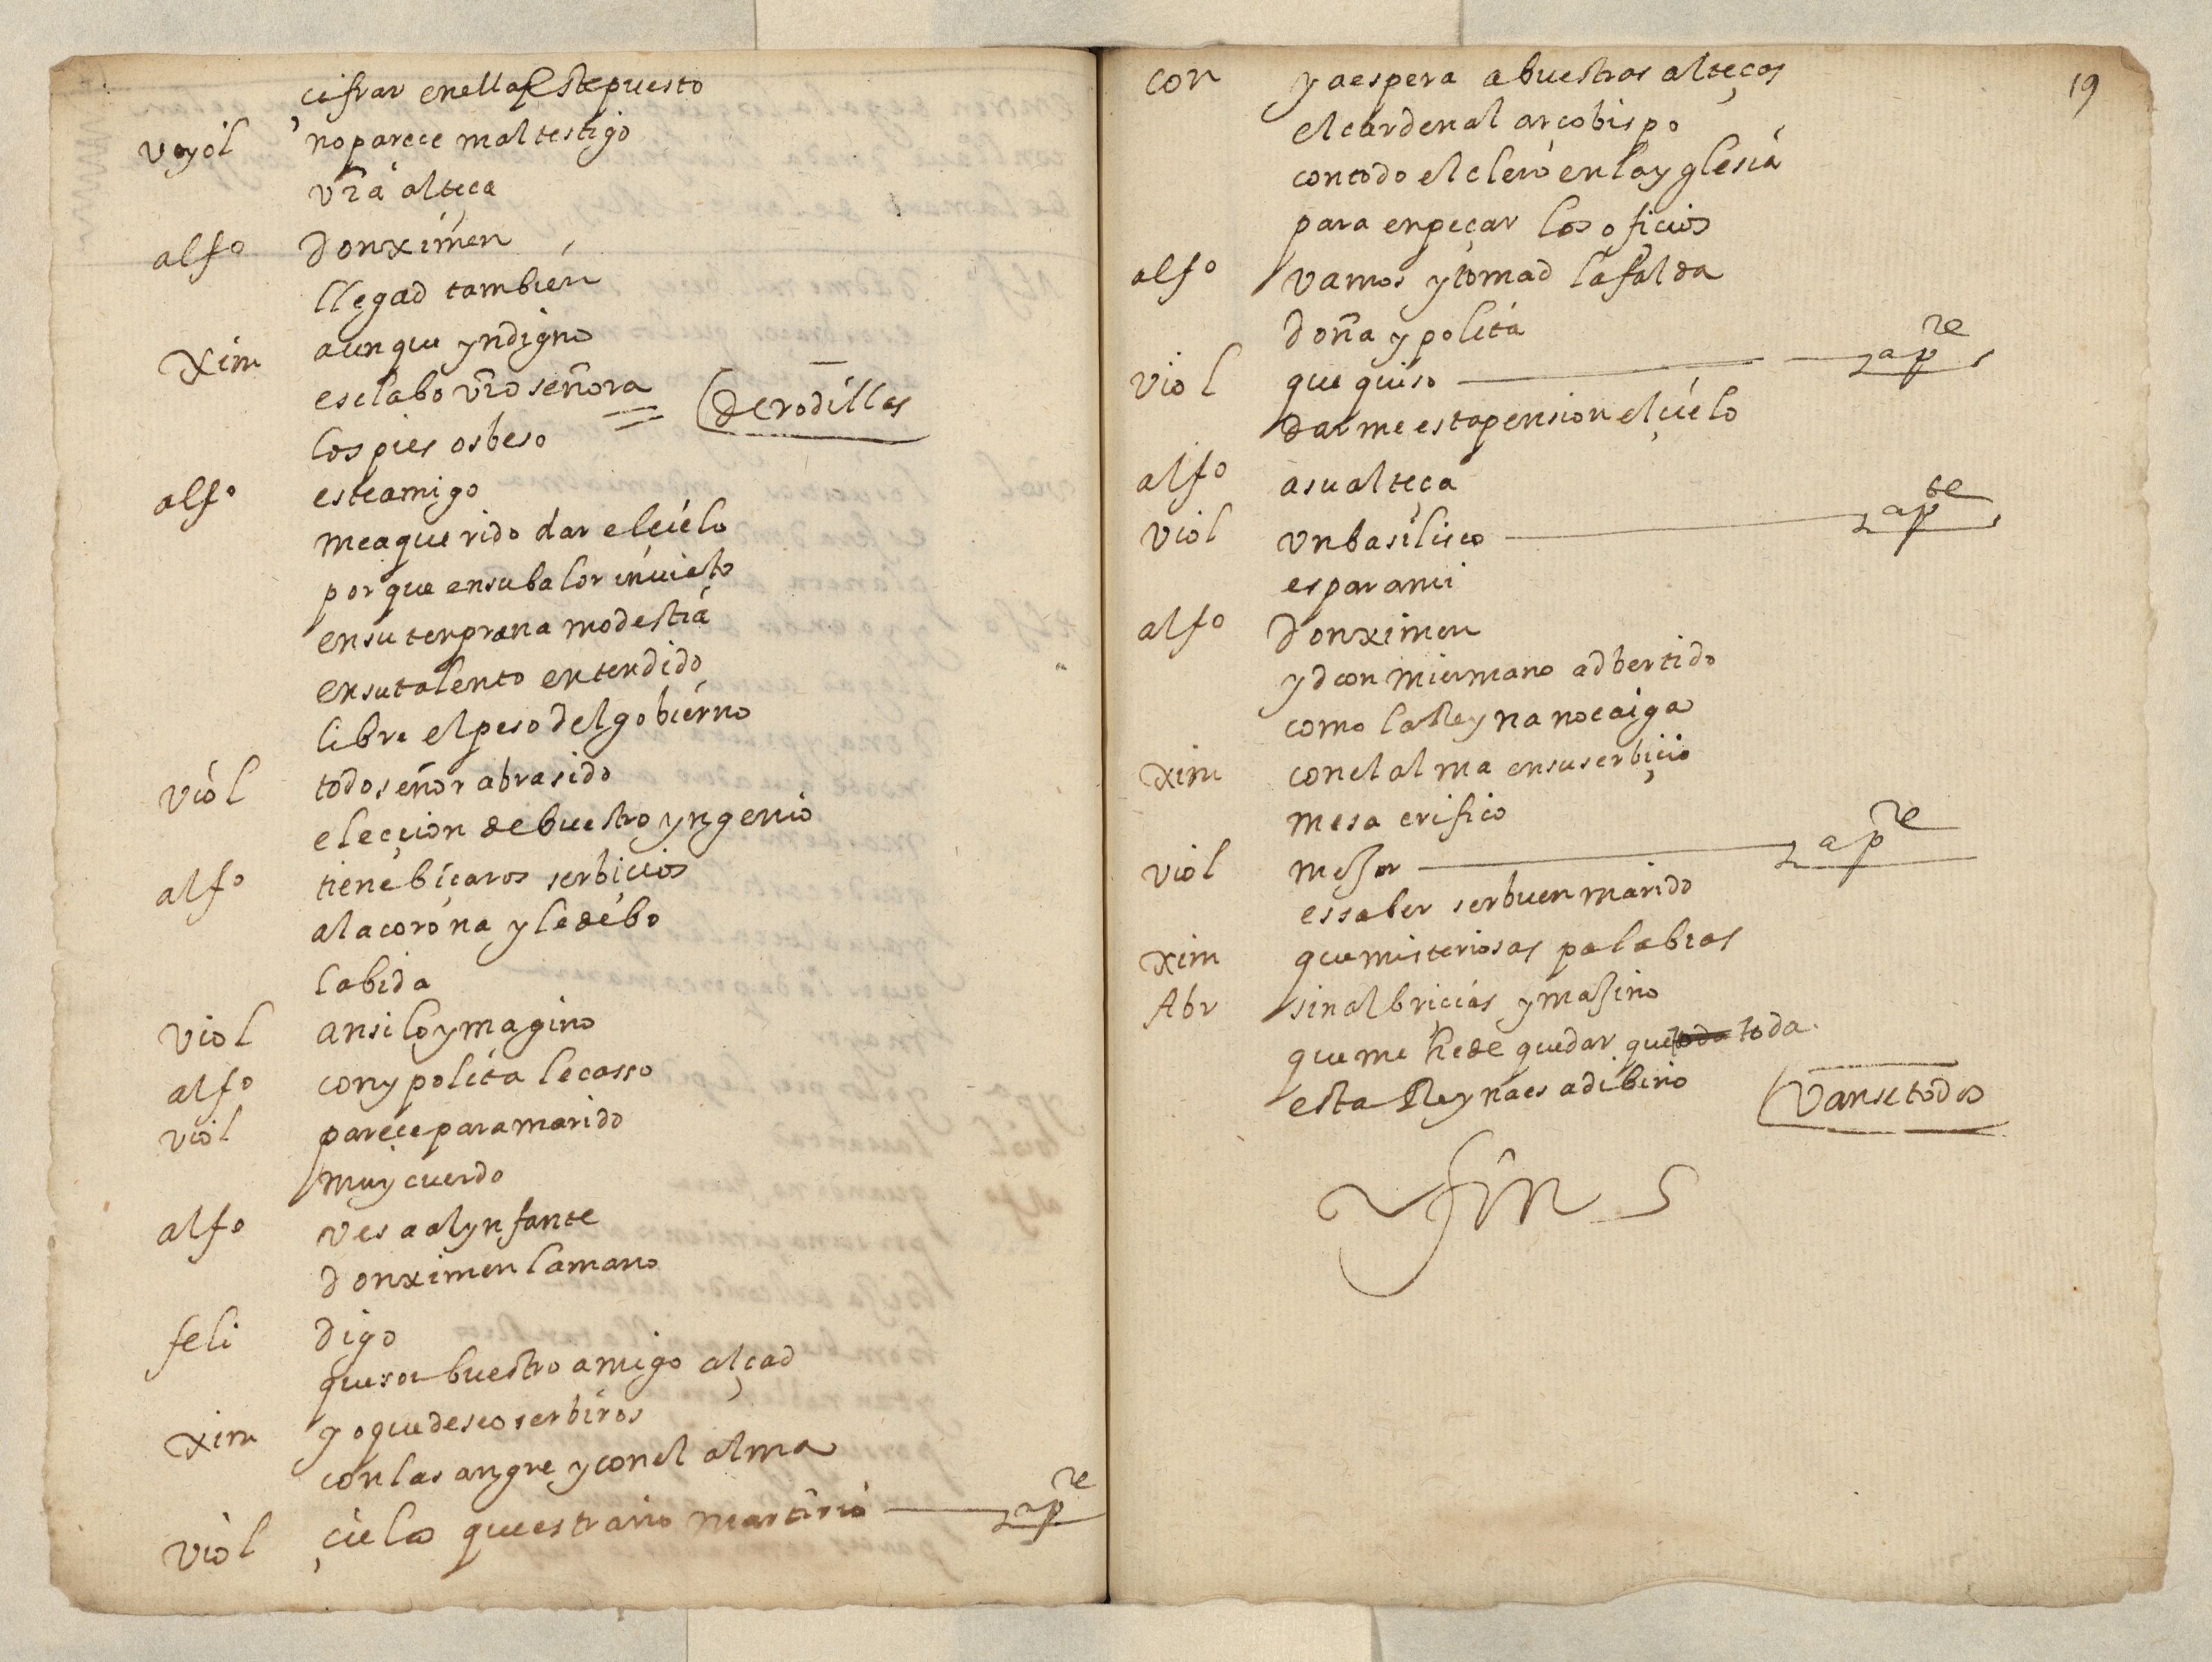 çifrar en ella este puesto
viol no parece mal testigo
vr̃a alteça
alfo don ximen
llegad tambien
Xim aunque yndigno
esclabo vr̃o señora
los pies os beso = de rodillas
alfo este amigo
me a querido dar el cielo
porque en su balor inuicto
en su tenprana modestia
en su talento entendido
libre el peso del gobierno
viol todo señor abra sido
elecçion de buestro yngenio
alfo tiene biçaros serbicios
a la corona y le debo
la bida
viol ansi lo ymagino
alfo con ypolita le casso
viol pareçe para marido
muy cuerdo
alfo vesa al ynfante
don ximen la mano
feli digo
que soi buestro amigo alçad
xim yo que deseo serbiros
con la sangre y con el alma
viol çielo que estraño martirio apte
19
con ya espera a buestras alteças
el cardenal arcobispo
con todo el clero en la yglesia
para enpeçar los oficios
alfo vamos y tomad la falda
doña ypolita
viol que quiso apte
darme esta pension el çielo
alfo a su alteça
viol vn basilisco apte
es para mi
alfo don ximen
yd con mi ermano adbertido
como la Reyna no caiga
xim con el alma en su serbiçio
me sacrifico
viol mejor apte
es saber ser buen marido
xim que misteriosas palabras
Abr sin albriçias ymajino
que me he de quedar que toda toda
esta Reyna es adibino vanse todos
fin